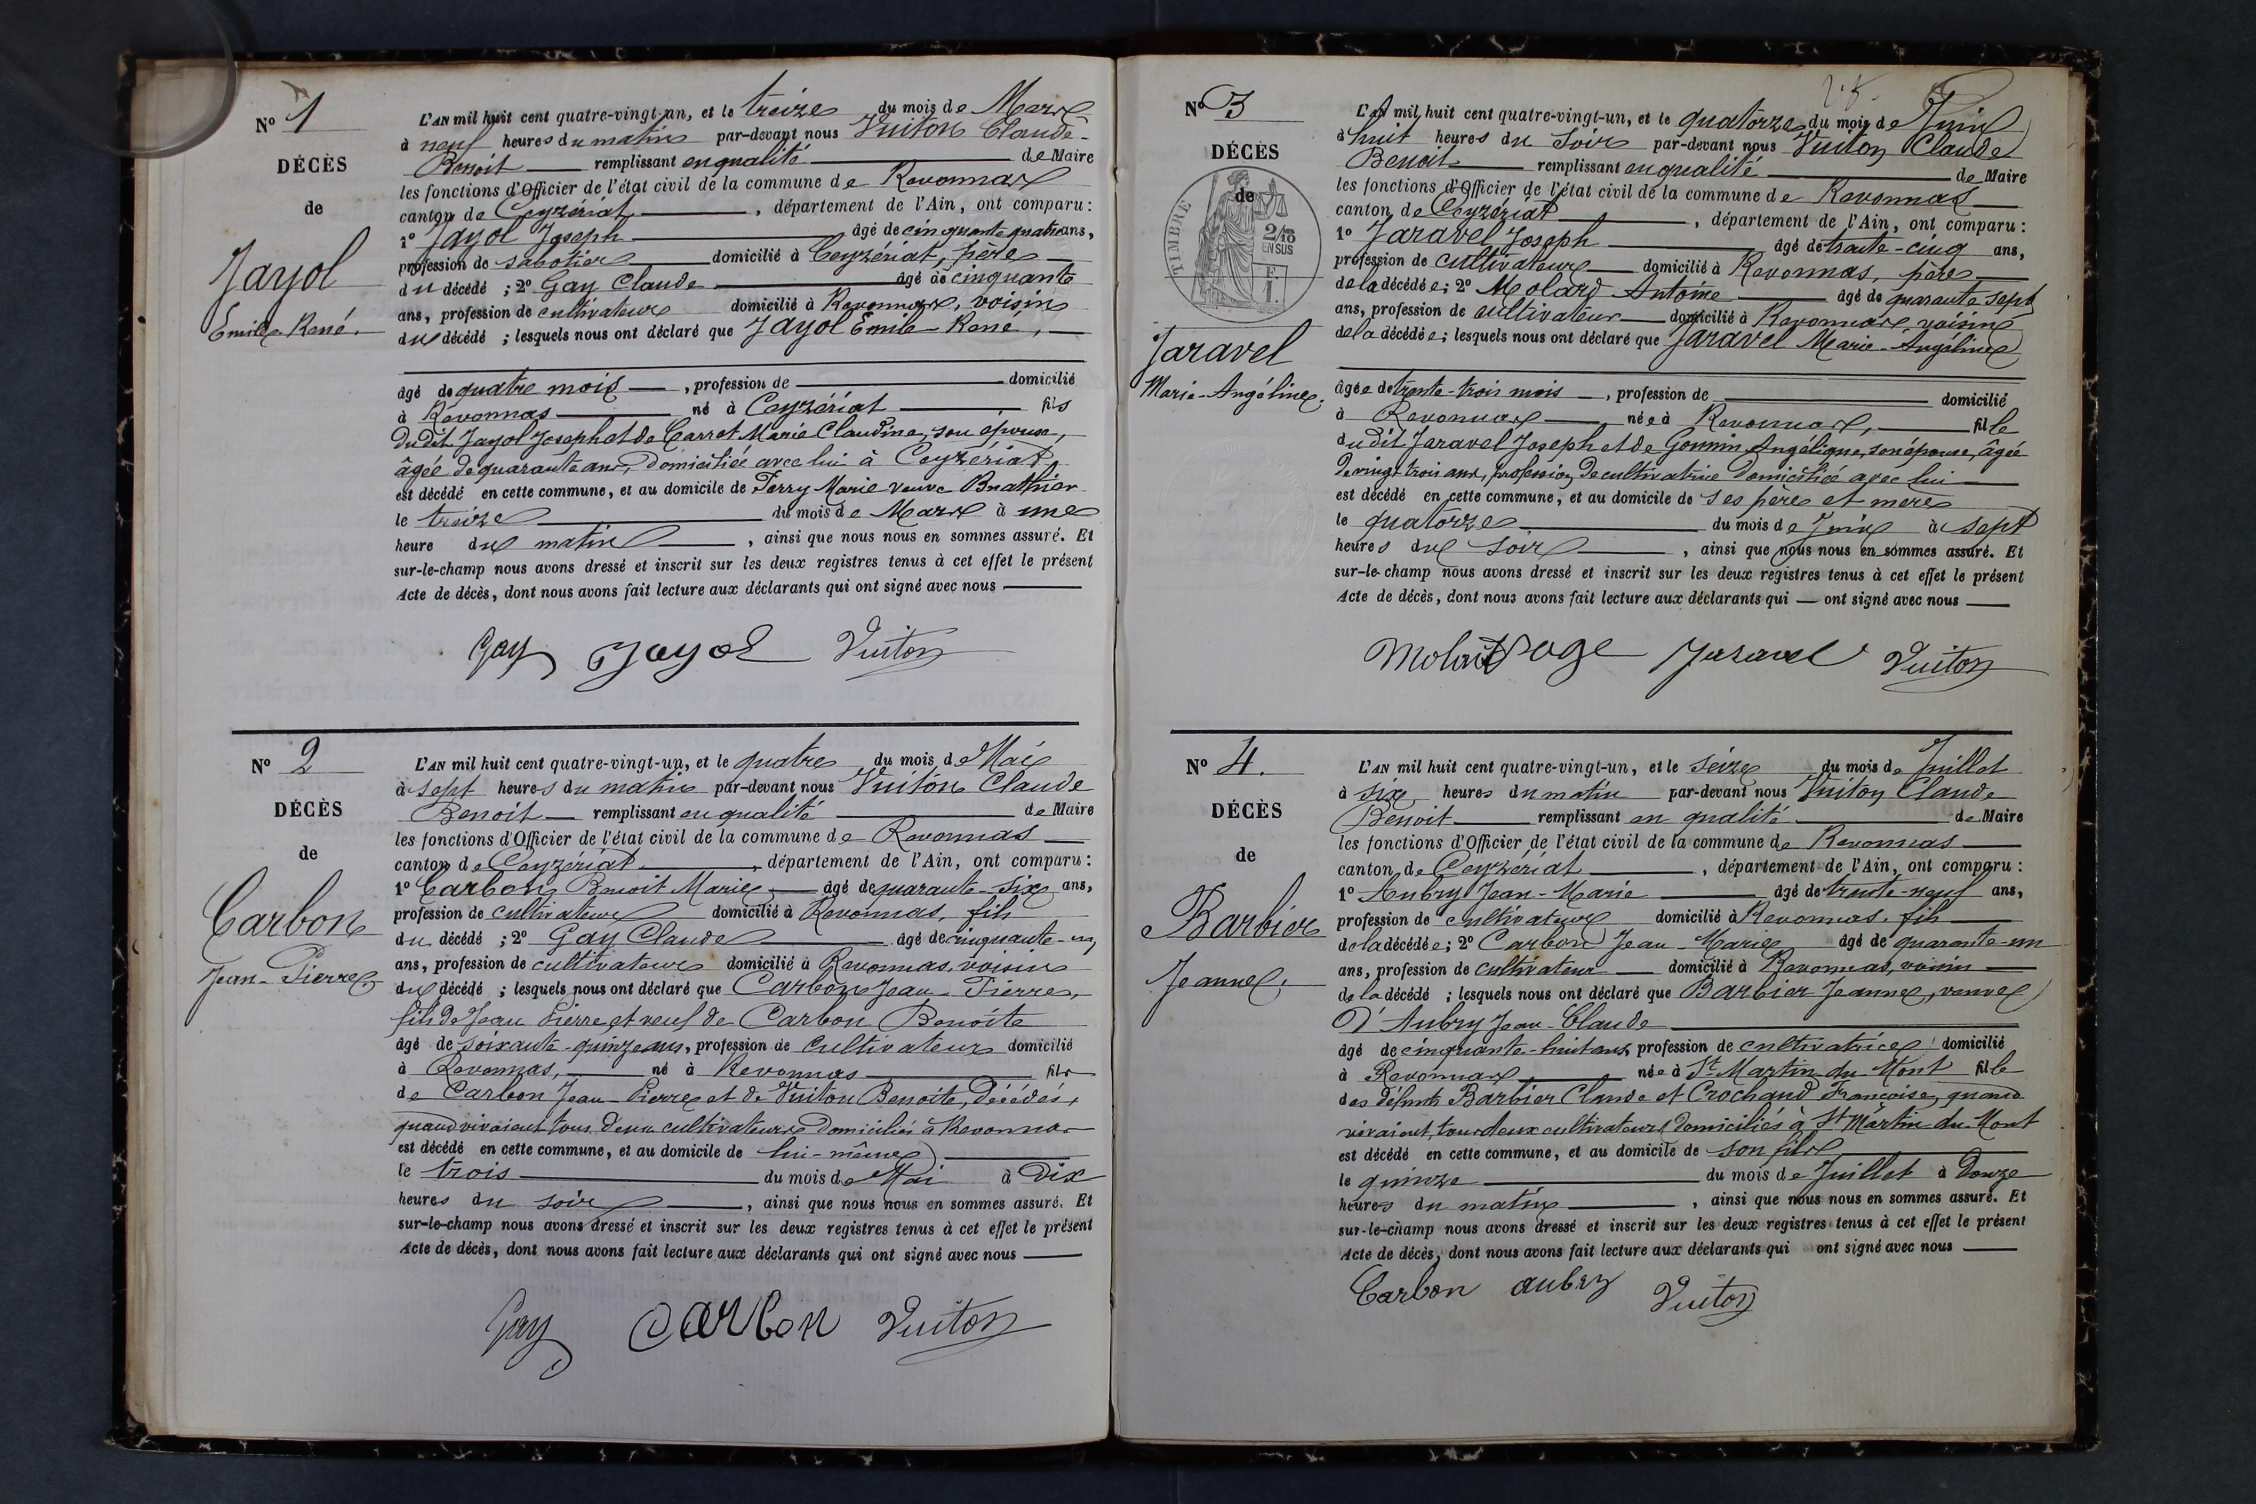 Nº 1
DÉCÈS
de
Jayol
Emile René.
L'AN mil huit cent quatre-vingt-un, et le treize du mois de Mars
à neuf heures du matin par-devant nous Vuiton Claude-
Benoit remplissant en qualité de Maire
les fonctions d'Officier de l'état civil de la commune de Revonnas
canton de Ceyzériat, département de l'Ain, ont comparu:
1º Jayol Joseph âgé de cinquante quatre ans,
profession de sabotier domicilié à Ceyzériat, père
du décédé ; 2º Gay Claude âgé de cinquante
ans, profession de cultivateur domicilié à Revonnas, voisin
du décédé ; lesquels nous ont déclaré que Jayol Emile René,
âgé de quatre mois, profession de domicilié
à Revonnas né à Ceyzériat fils
dudit Jayol Joseph et de Carret Marie Claudine, son épouse,
âgée de quarante ans, domiciliée avec lui à Ceyzériat,
est décédé en cette commune, et au domicile de Ferry Marie veuve Buathier
le treize du mois de Mars à une
heure du matin, ainsi que nous nous en sommes assuré. Et
sur-le-champ nous avons dressé et inscrit sur les deux registres tenus à cet effet le présent
Acte de décès, dont nous avons fait lecture aux déclarants qui ont signé avec nous
Gay Jayol Vuiton
Nº 2
DÉCÈS
de
Carbon
Jean-Pierre
L'AN mil huit cent quatre-vingt-un, et le quatre du mois de Mai
à sept heures du matin par-devant nous Vuiton Claude
Benoit remplissant en qualité de Maire
les fonctions d'Officier de l'état civil de la commune de Revonnas
canton de Ceyzériat, département de l'Ain, ont comparu:
1º Carbon Benoit Marie âgé de quarante-six ans,
profession de cultivateur domicilié à Revonnas, fils
du décédé ; 2º Gay Claude âgé de cinquante-un
ans, profession de cultivateur domicilié à Revonnas, voisin
du décédé ; lesquels nous ont déclaré que Carbon Jean-Pierre,
fils de Jean Pierre et veuf de Carbon Benoite
âgé de soixante-quinze ans, profession de cultivateur domicilié
à Revonnas, né à Revonnas fils
de Carbon Jean-Pierre et de Vuiton Benoite, décédés,
quand vivaient tous deux cultivateurs domiciliés à Revonnas
est décédé en cette commune, et au domicile de lui-même
le trois du mois de Mai à dix
heures du soir, ainsi que nous nous en sommes assuré. Et
sur-le-champ nous avons dressé et inscrit sur les deux registres tenus à cet effet le présent
Acte de décès, dont nous avons fait lecture aux déclarants qui ont signé avec nous
Gay Carbon Vuiton
Nº 3
DÉCÈS
de
TIMBRE
2/10
EN SUS
Jaravel
Marie-Angéline.
L'AN mil huit cent quatre-vingt-un, et le quatorze du mois de Juin
à huit heures du soir par-devant nous Vuiton Claude
Benoit remplissant en qualité de Maire
les fonctions d'Officier de l'état civil de la commune de Revonnas
canton de Ceyzériat, département de l'Ain, ont comparu:
1º Jaravel Joseph âgé de trente-cinq ans,
profession de cultivateur domicilié à Revonnas, père
de la décédée; 2º Molard Antoine âgé de quarante sept
ans, profession de cultivateur domicilié à Revonnas, voisin
de la décédée; lesquels nous ont déclaré que Jaravel Marie-Angéline
âgée de trente-trois mois, profession de domicilié
à Revonnas née à Revonnas, fille
du dit Jaravel Joseph et de Gonnin Angélique, son épouse, âgée
de vingt trois ans, profession de cultivatrice domiciliée avec lui
est décédé en cette commune, et au domicile de ses père et mère
le quatorze du mois de Juin à sept
heures du soir, ainsi que nous nous en sommes assuré. Et
sur-le-champ nous avons dressé et inscrit sur les deux registres tenus à cet effet le présent
Acte de décès, dont nous avons fait lecture aux déclarants qui ont signé avec nous
Jaravel Vuiton
Nº 4.
DÉCÈS
de
Barbier
Jeanne.
L'AN mil huit cent quatre-vingt-un, et le seize du mois de Juillet
à six heures du matin par-devant nous Vuiton Claude
Benoit remplissant en qualité de Maire
les fonctions d'Officier de l'état civil de la commune de Revonnas
canton de Ceyzériat, département de l'Ain, ont comparu:
1º Aubry Jean-Marie âgé de trente-neuf ans,
profession de cultivateur domicilié à Revonnas, fils
de la décédée; 2º Carbon Jean-Marie âgé de quarante-un
ans, profession de cultivateur domicilié à Revonnas, voisin
de la décédé ; lesquels nous ont déclaré que Barbier Jeanne, veuve
d'Aubry Jean-Claude
âgé de cinquante-huit ans, profession de cultivatrice domicilié
à Revonnas, née à St Martin du Mont fille
des défunts Barbier Claude et Crochand Françoise, quand
vivaient, tous deux cultivateurs domiciliés à St Martin du Mont
est décédé en cette commune, et au domicile de son fils
le quinze du mois de Juillet à douze
heures du matin, ainsi que nous nous en sommes assuré. Et
sur-le-champ nous avons dressé et inscrit sur les deux registres tenus à cet effet le présent
Acte de décès, dont nous avons fait lecture aux déclarants qui ont signé avec nous
Carbon aubry Vuiton